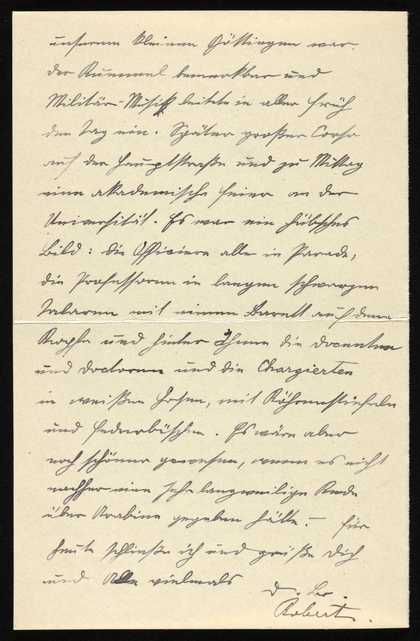 unserem kleinen Göttingen war
der Rummel bemerkbar und
Militär-Musik leitete in aller Früh
den Tag ein. Später großer Corso
auf der Hauptstraße und zu Mittag
eine akademische Feier an der
Universität. Es war ein hübsches
Bild: die Officiere alle in Parade,
die Professoren in langen schwarzen
Talaren mit einem Barett auf dem
Kopfe und hinter Ihnen die Docenten
und Doctoren und die Chargierten
in weißen Hosen, mit Röhrenstiefeln
und Federbüschen. Es wäre aber
noch schöner gewesen, wenn es nicht
nachher eine sehr langweilige Rede
über gegeben hätte. – Für
heute schließe ich und grüße Dich
und Alle vielmals
Robert.